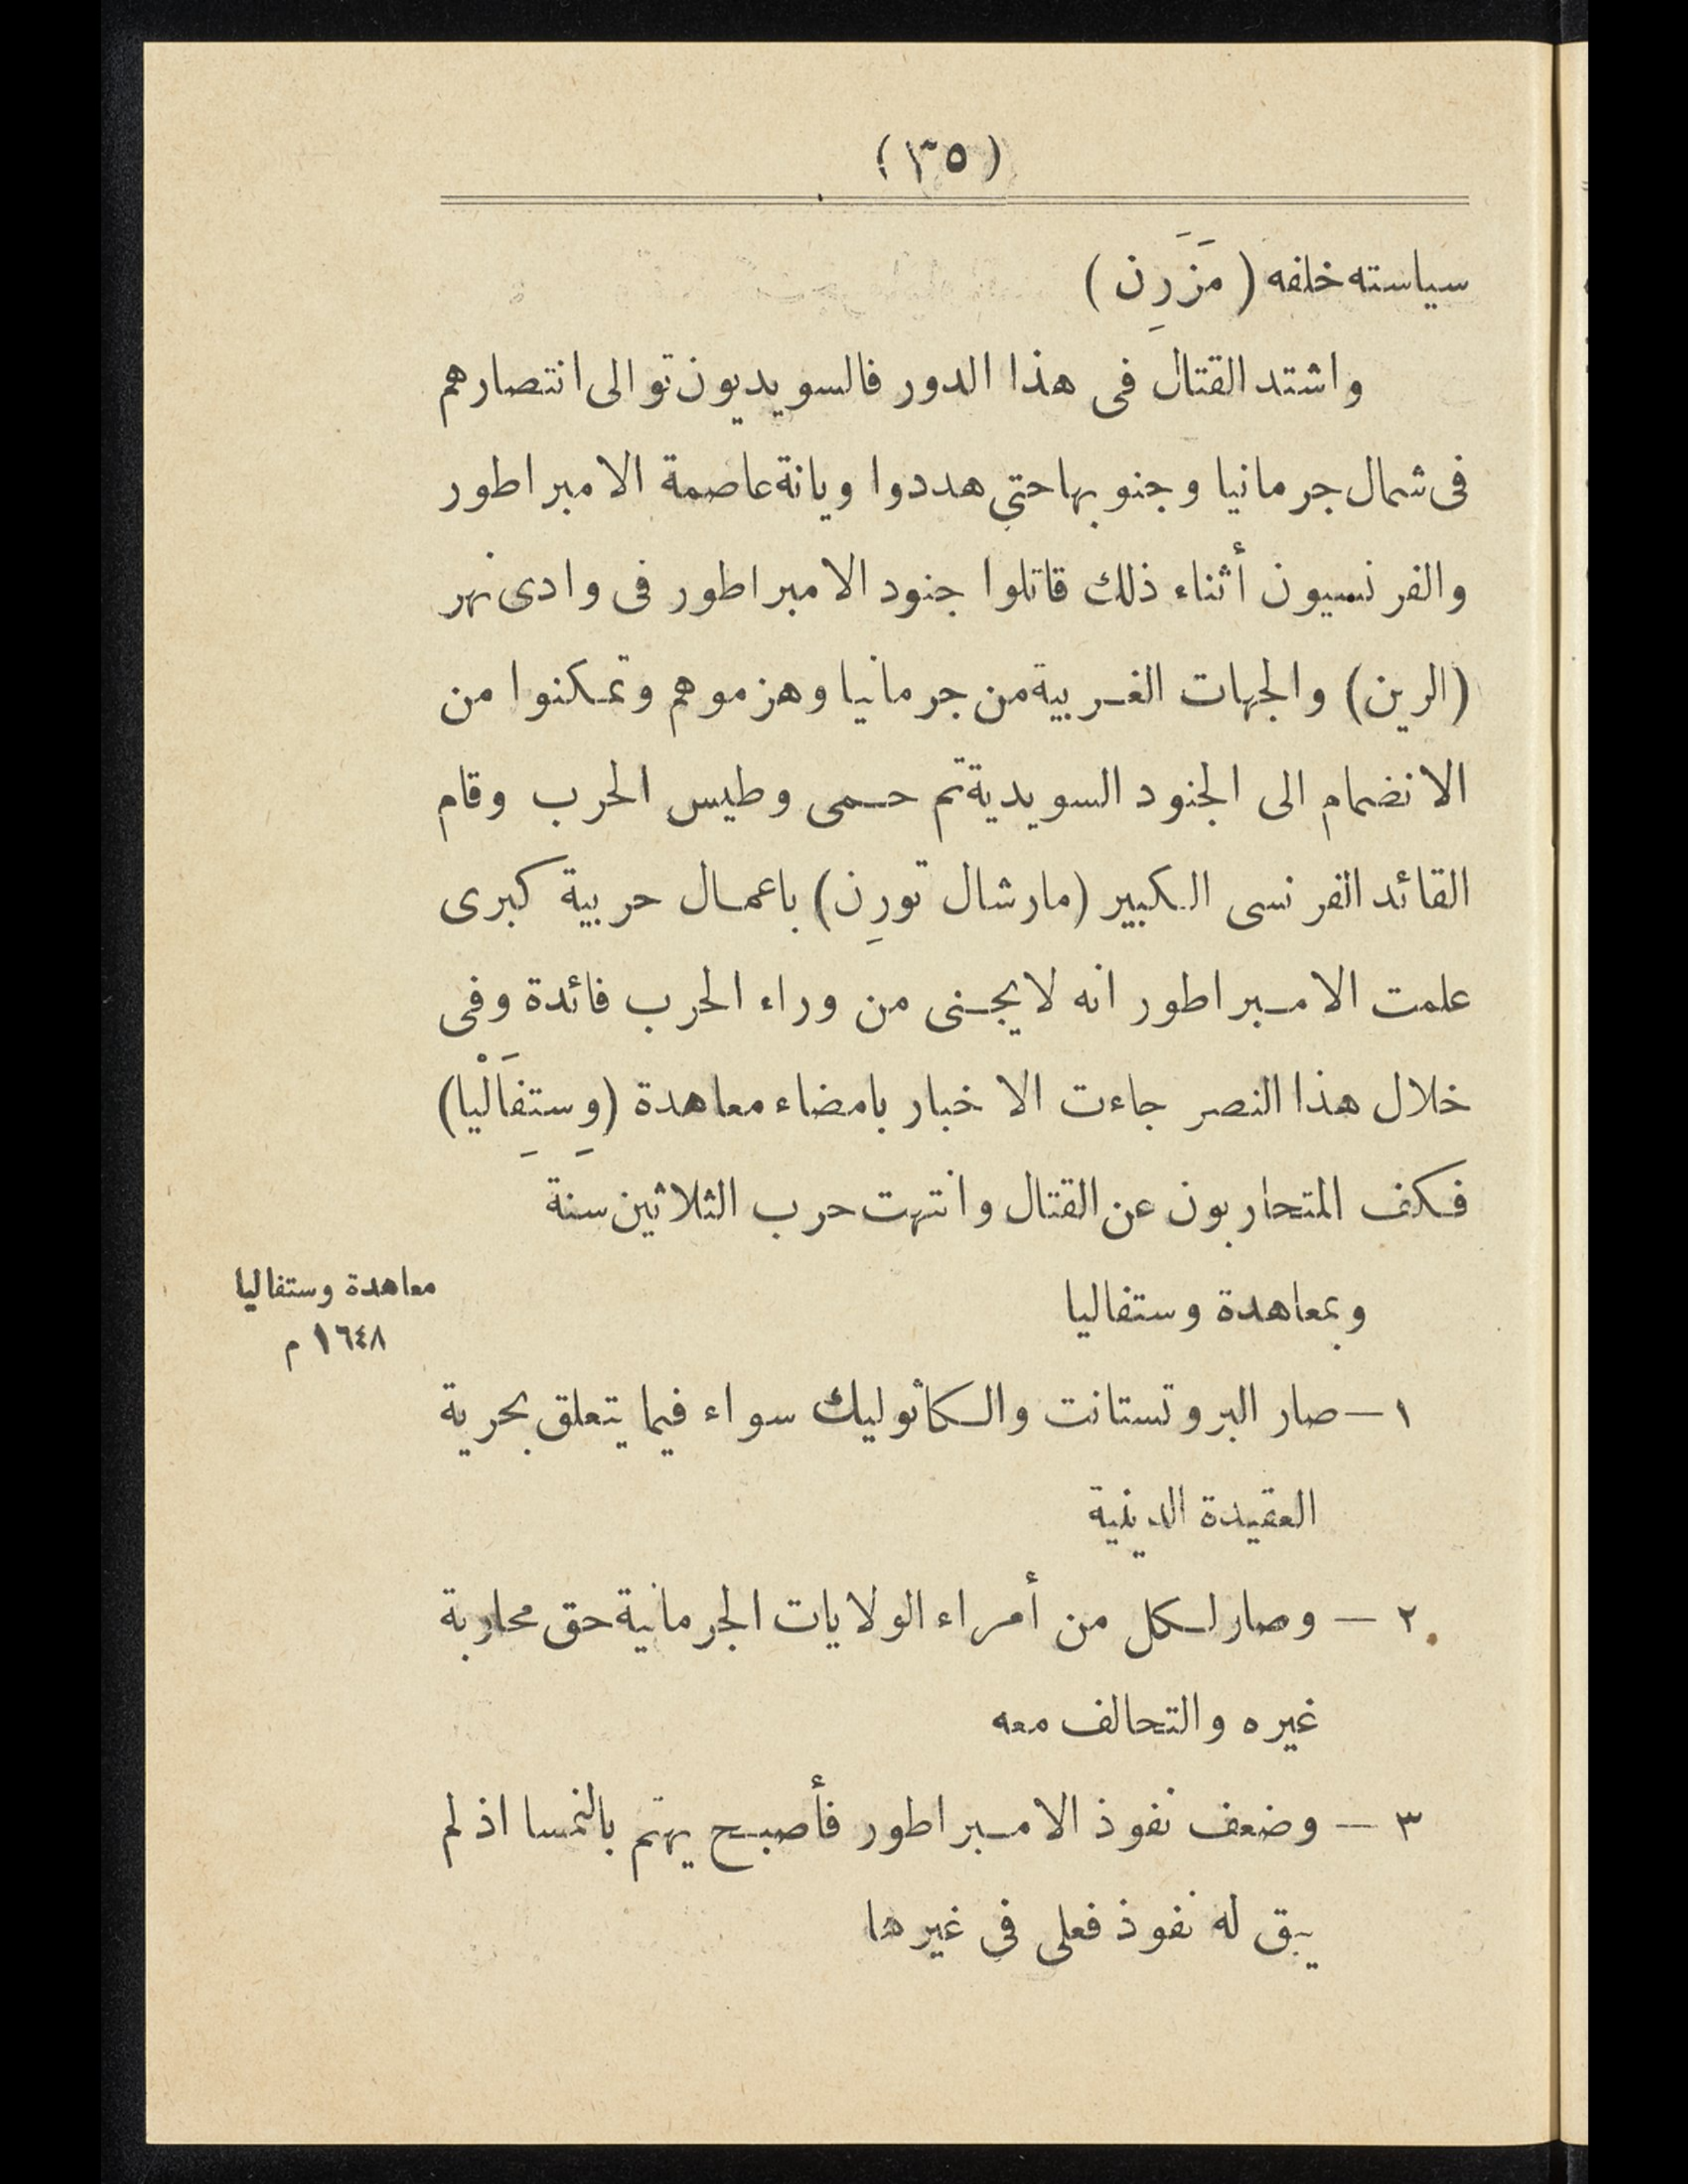 (٣٥)
سياسته خلفه (مَزَرِن)
واشتد القتال فى هذا الدور فالسويديون توالى انتصارهم
فى شمال جرمانيا وجنوبها حتى هددوا ويانة عاصمة الامبراطور
والفرنسيون أثناء ذلك قاتلوا جنود الامبراطور فى وادى نهر
(الرين) والجهات الغربية من جرمانيا وهزموهم وتمكنوا من
الانضمام الى الجنود السويدية ثم حمى وطيس الحرب وقام
القائد الفرنسى الكبير (مارشال تورِن) باعمال حربية كبرى
علمت الامبراطور انه لا يجنى من وراء الحرب فائدة وفى
خلال هذا النصر جاءت الاخبار بامضاء معاهدة (وِستِفَالْيا)
فكف المتحاربون عن القتال وانتهت حرب الثلاثين سنة
وبمعاهدة وستفاليا
معاهدة وستفاليا
١٦٤٨ م
١ — صار البروتستانت والكاثوليك سواء فيما يتعلق بحرية
العقيدة الدينية
٢ — وصار لكل من أمراء الولايات الجرمانية حق محاربة
غيره والتحالف معه
٣ — وضعف نفوذ الامبراطور فأصبح يهتم بالنمسا اذ لم
يبق له نفوذ فعلى فى غيرها